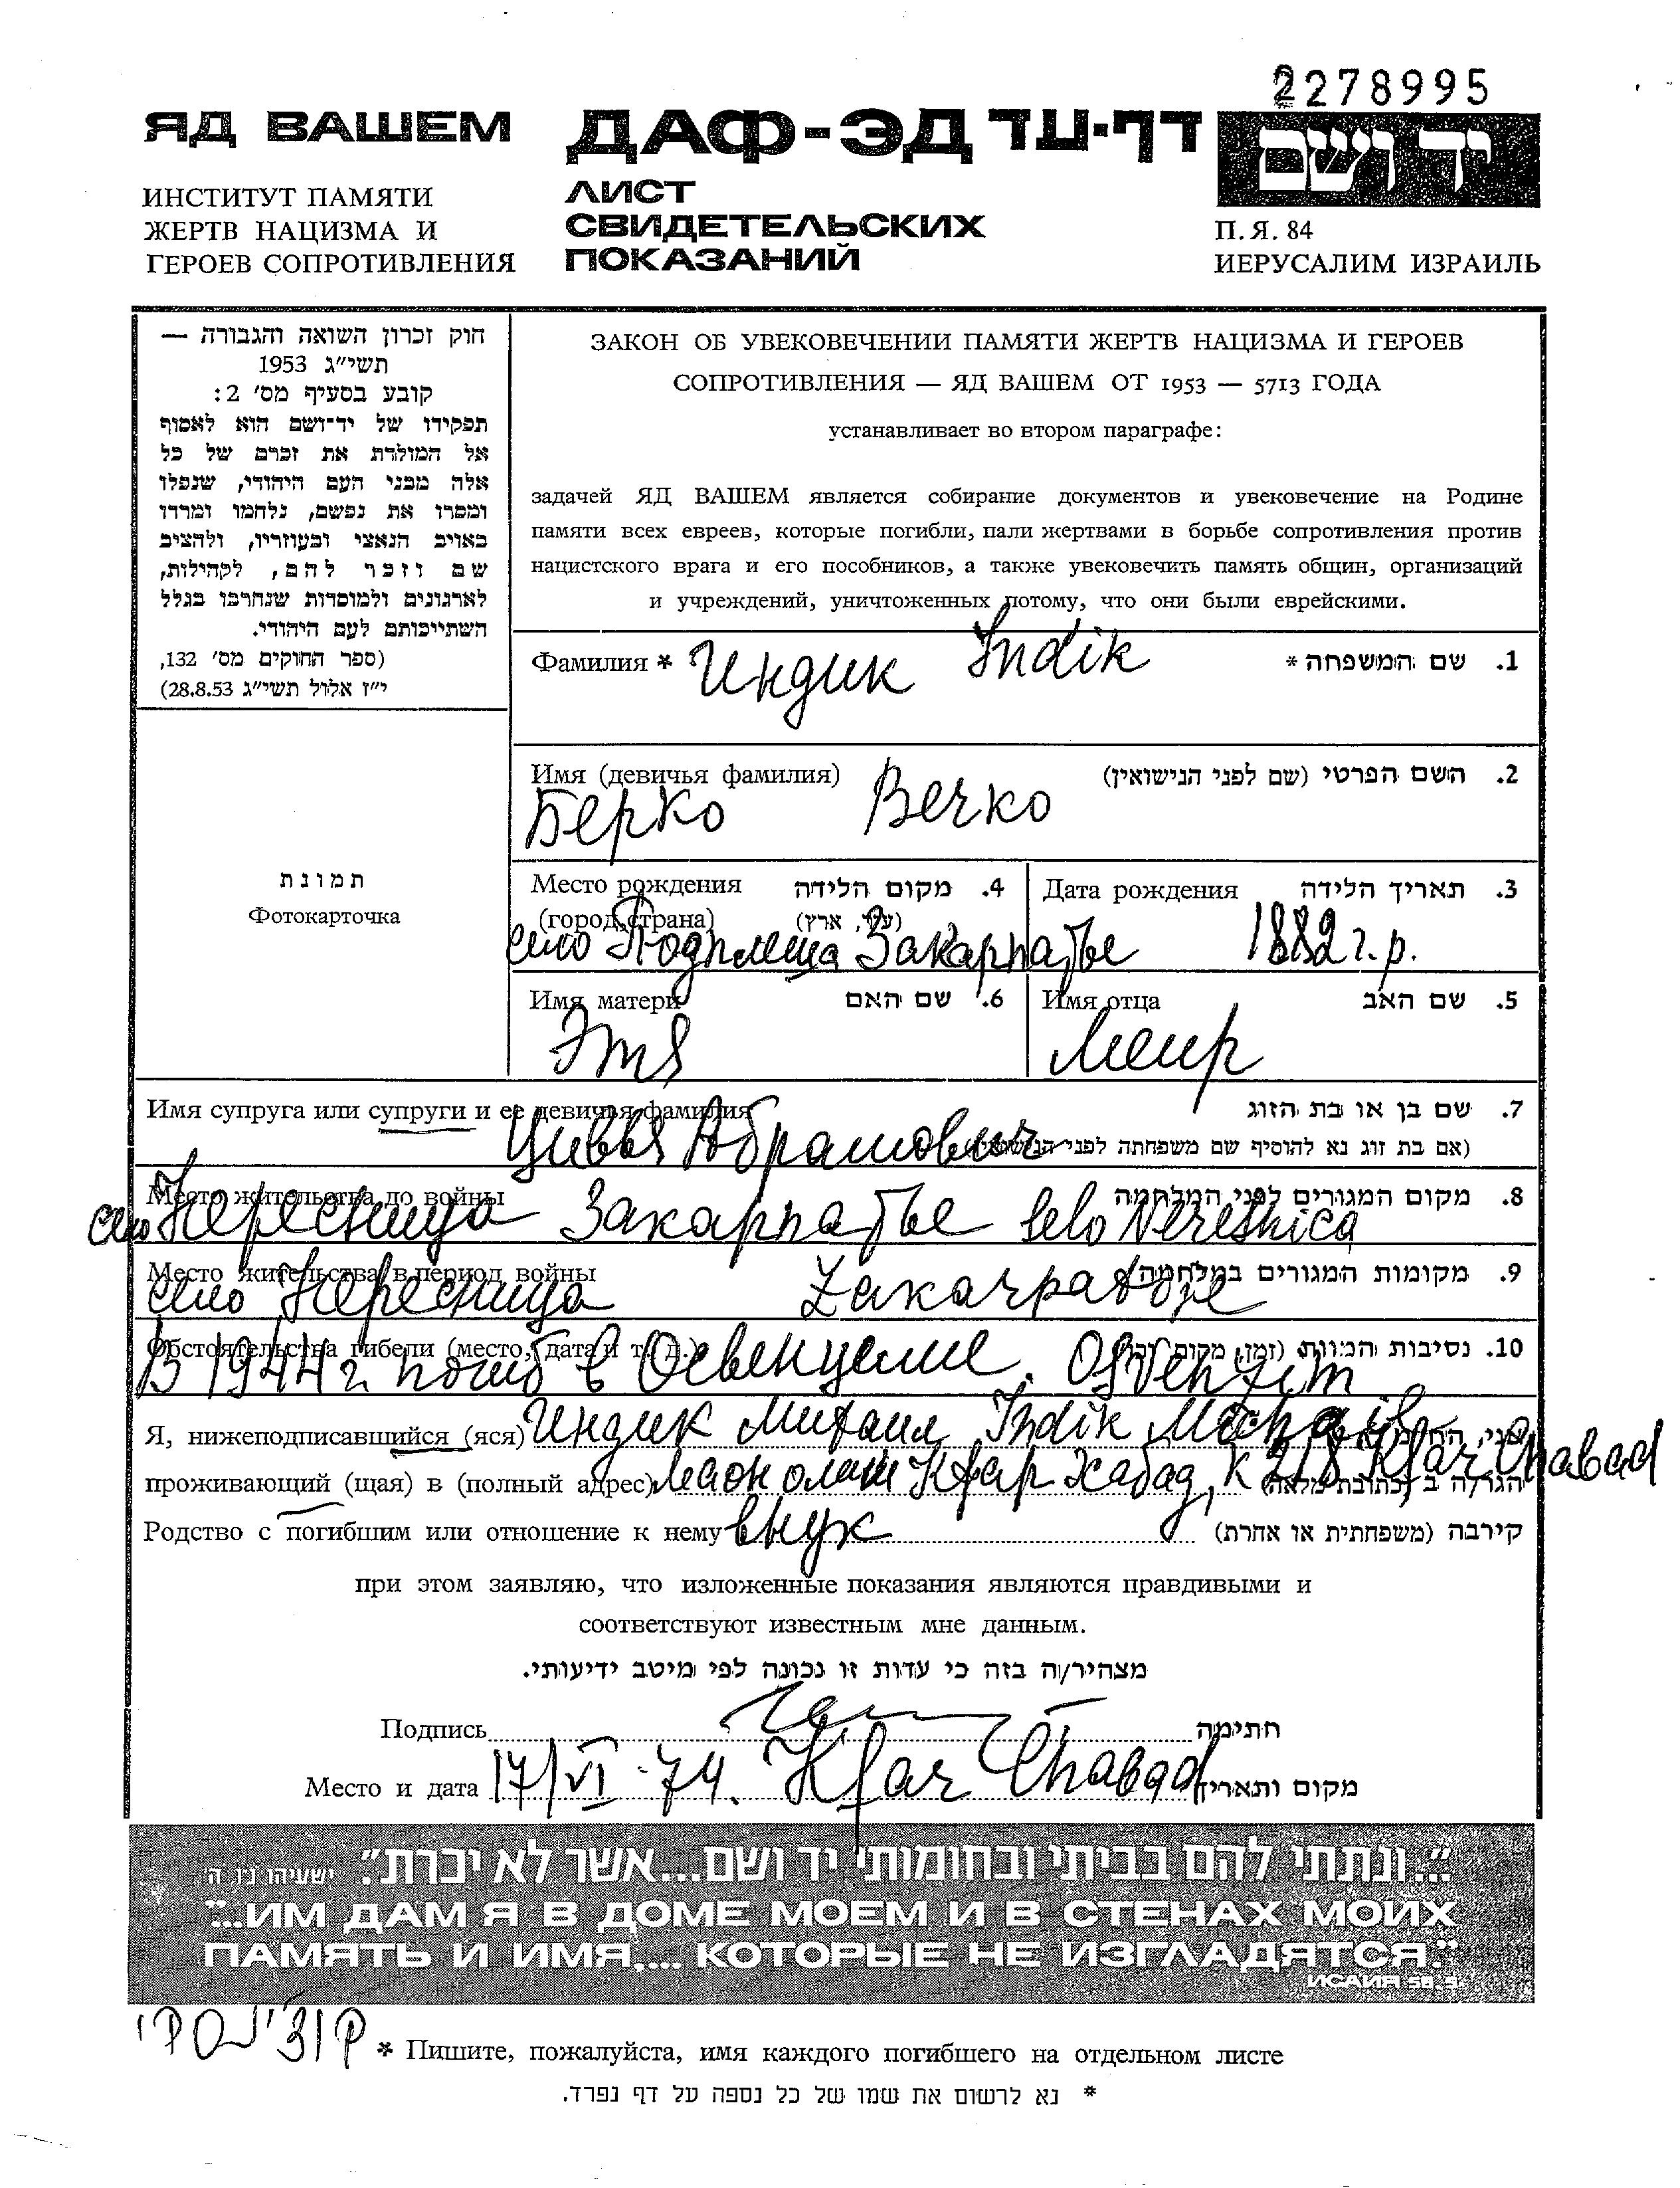 2278995
ЯД ВАШЕМ
ДАФ-ЭД דף-עד
יד ושם
ИНСТИТУТ ПАМЯТИ
ЖЕРТВ НАЦИЗМА И
ГЕРОЕВ СОПРОТИВЛЕНИЯ
ЛИСТ
СВИДЕТЕЛЬСКИХ
ПОКАЗАНИЙ
П. Я. 84
ИЕРУСАЛИМ ИЗРАИЛЬ
חוק זכרון השואה והגבורה —
תשי״ג 1953
קובע בסעיף מס׳ 2:
תפקידו של יד־ושם הוא לאסוף
אל המולדת את זכרם של כל
אלה מבני העם היהודי, שנפלו
ומסרו את נפשם, נלחמו ומרדו
באויב הנאצי ובעוזריו, ולהציב
שם וזכר להם, לקהילות,
לארגונים ולמוסדות שנחרבו בגלל
השתייכותם לעם היהודי.
(ספר החוקים מס׳ 132,
י״ז אלול תשי״ג 28.8.53)
ЗАКОН ОБ УВЕКОВЕЧЕНИИ ПАМЯТИ ЖЕРТВ НАЦИЗМА И ГЕРОЕВ
СОПРОТИВЛЕНИЯ — ЯД ВАШЕМ ОТ 1953 — 5713 ГОДА
устанавливает во втором параграфе:
задачей ЯД ВАШЕМ является собирание документов и увековечение на Родине
памяти всех евреев, которые погибли, пали жертвами в борьбе сопротивления против
нацистского врага и его пособников, а также увековечить память общин, организаций
и учреждений, уничтоженных потому, что они были еврейскими.
Фамилия * Индик Indik 1. שם המשפחה *
Имя (девичья фамилия) 2. השם הפרטי (שם לפני הנישואין)
Берко Вечко
Место рождения 4. מקום הלידה
(город, страна) (עיר, ארץ)
село Подплеша Закарпатье
Дата рождения 3. תאריך הלידה
1882 г.р.
Имя матери 6. שם האם
Этя
Имя отца 5. שם האב
Меир
Имя супруга или супруги и ее девичья фамилия 7. שם בן או בת הזוג
Цивья Абрамович (אם בת זוג נא להוסיף שם משפחתה לפני הנישואין)
Место жительства до войны 8. מקום המגורים לפני המלחמה
село Нересница Закарпатье selo Neresnica
Место жительства в период войны 9. מקומות המגורים במלחמה
село Нересница Zakarpatje
Обстоятельства гибели (место, дата и т. д.) 10. נסיבות המוות (זמן, מקום וכו׳)
В 1944 г. погиб в Освенциме. Osvenzim
Я, нижеподписавшийся (яся) Индик Михаил Indik Michail אני, החתום
проживающий (щая) в (полный адрес) Кфар Хабад, к 218 Kfar Chabad הגר/ה ב (כתובת מלאה)
Родство с погибшим или отношение к нему внук קירבה (משפחתית או אחרת)
при этом заявляю, что изложенные показания являются правдивыми и
соответствуют известным мне данным.
מצהיר/ה בזה כי עדות זו נכונה לפי מיטב ידיעותי.
Подпись חתימה
Место и дата 17/VI-74. Kfar Chabad מקום ותאריך
"...ונתתי להם בביתי ובחומותי יד ושם...אשר לא יכרת". ישעיהו נ״ו ה׳
"...ИМ ДАМ Я В ДОМЕ МОЕМ И В СТЕНАХ МОИХ
ПАМЯТЬ И ИМЯ,... КОТОРЫЕ НЕ ИЗГЛАДЯТСЯ."
ИСАИЯ 56, 5.
* Пишите, пожалуйста, имя каждого погибшего на отдельном листе
* נא לרשום את שמו של כל נספה על דף נפרד.